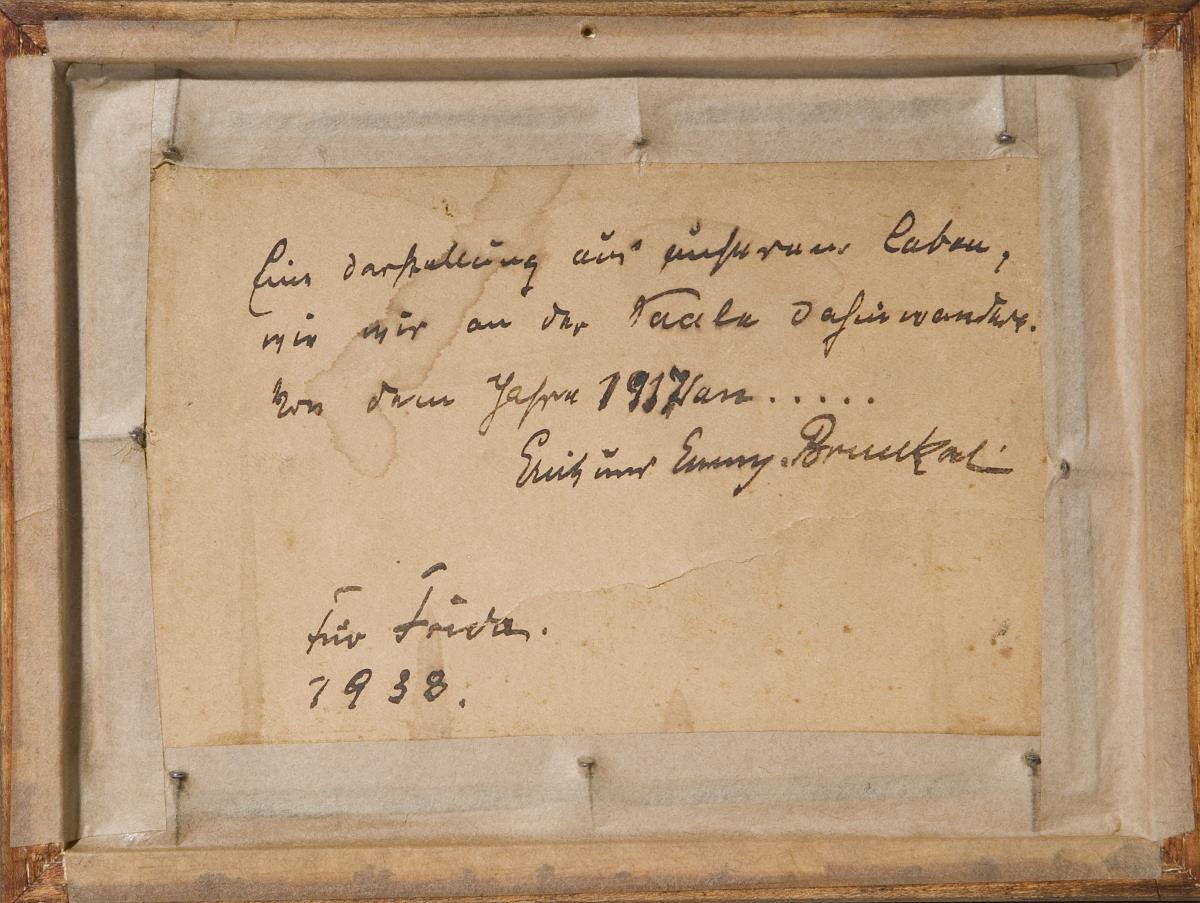 Eine darstellung aus unserem Leben,
wie wir an der Saale dahinwandern.
Von dem Jahre 1917 an.....
Erich und Emmy. Bruckal
Für Frida.
1938.